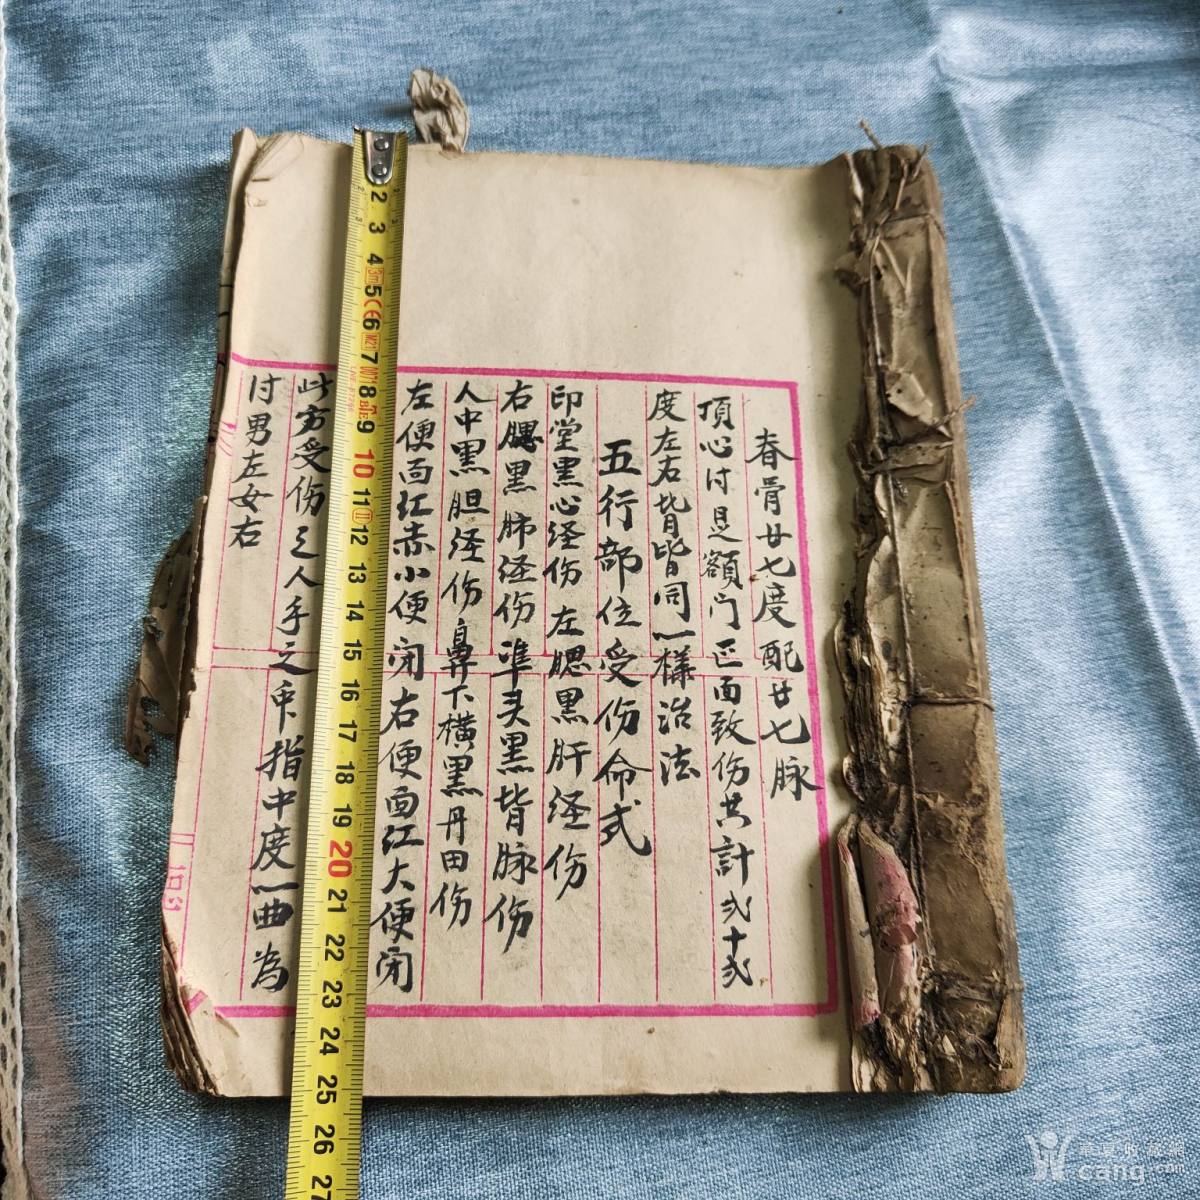 春骨廿七度配廿七脉
頂心汁是額门正面致伤共計弍十弍
度左右皆皆同一樣治法
五行部位受伤命式
印堂黑心经伤左腮黑肝经伤
右腮黑肺经伤準头黑背脉伤
人中黑胆经伤鼻下横黑丹田伤
左便面红赤小便闭右便面红大便闭
此方受伤之人手之中指中度一曲為
汁男左女右
2
3
4
5
6
7
8
9
10
11
12
13
14
15
16
17
18
19
20
21
22
23
24
25
26
27
3m
CE
M21
華夏收藏網
cang.com